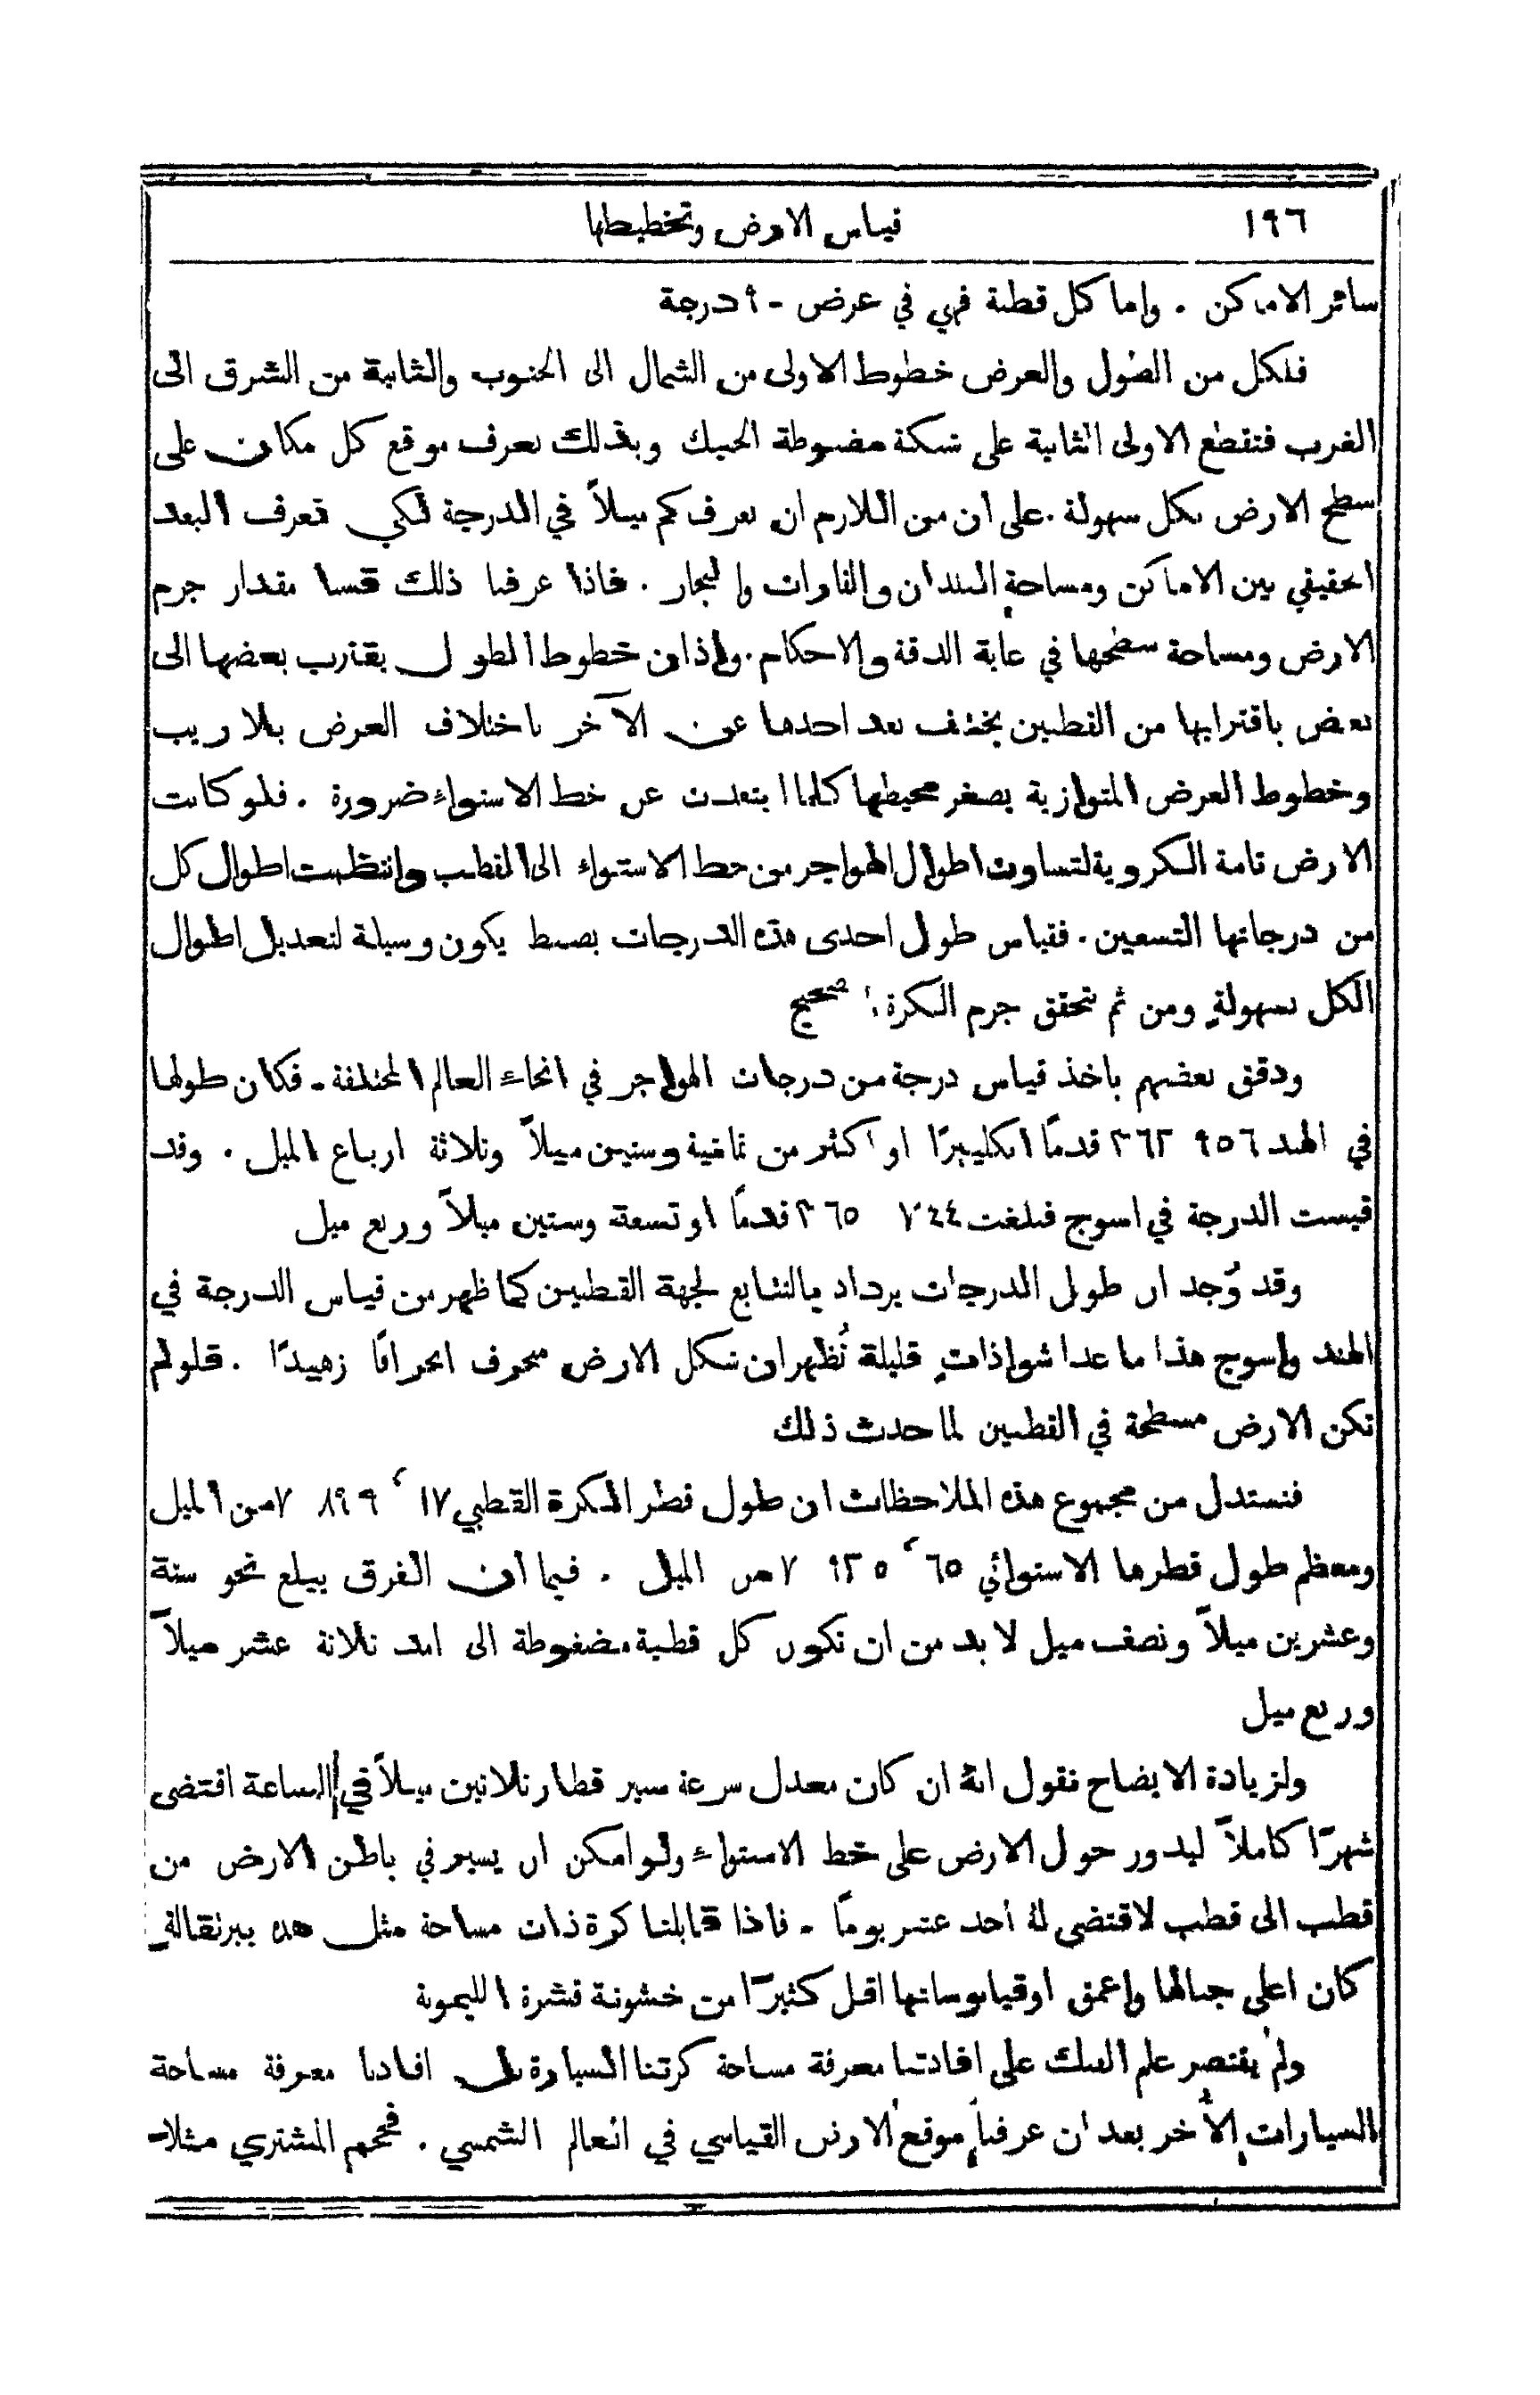 ١٩٦ قياس الارض وتخطيطها
سائر الاماكن . واما كل قطبة فهي في عرض ٩٠ درجة
فلكل من الطول والعرض خطوط الاولى من الشمال الى الجنوب والثانية من الشرق الى
الغرب فتقطع الاولى الثانية على شبكة مضبوطة الحبك وبذلك نعرف موقع كل مكان على
سطح الارض بكل سهولة . على ان من اللازم ان نعرف كم ميلاً في الدرجة لكي نعرف البعد
الحقيقي بين الاماكن ومساحة البلدان والقارات والبحار . فاذا عرفنا ذلك قسنا مقدار جرم
الارض ومساحة سطحها في غاية الدقة والاحكام . واذ ان خطوط الطول يقترب بعضها الى
بعض باقترابها من القطبين يختلف بعد احدها عن الآخر باختلاف العرض بلا ريب
وخطوط العرض المتوازية يصغر محيطها كلما ابتعدت عن خط الاستواء ضرورة . فلو كانت
الارض تامة الكروية لتساوت اطوال الهواجر من خط الاستواء الى القطب وانتظمت اطوال كل
من درجاتها التسعين . فقياس طول احدى هذه الدرجات بضبط يكون وسيلة لتعديل اطوال
الكل بسهولةٍ ومن ثم نتحقق جرم الكرة الصحيح
ودقق بعضهم باخذ قياس درجة من درجات الهواجر في انحاء العالم المختلفة - فكان طولها
في الهند ٣٦٢ ٩٥٦ قدماً انكليزيًا او اكثر من ثمانية وستين ميلاً وثلاثة ارباع الميل . وقد
قيست الدرجة في اسوج فبلغت ٣٦٥ ٧٤٤ قدماً او تسعة وستين ميلاً وربع ميل
وقد وُجد ان طول الدرجات يزداد بالتتابع لجهة القطبين كما ظهر من قياس الدرجة في
الهند واسوج هذا ما عدا شواذات قليلة تُظهر ان شكل الارض منحرف انحرافًا زهيدًا . فلو لم
تكن الارض مسطحة في القطبين لما حدث ذلك
فنستدل من مجموع هذه الملاحظات ان طول قطر الكرة القطبي ١٧ ٬ ٧٨٩٩ من الميل
ومعظم طول قطرها الاستوائي ٦٥ ٬ ٧٩٢٥ من الميل . فبما ان الفرق يبلغ نحو ستة
وعشرين ميلاً ونصف ميل لا بد من ان تكون كل قطبة مضغوطة الى امد ثلاثة عشر ميلاً
وربع ميل
ولزيادة الايضاح نقول انهُ ان كان معدل سرعة سير قطار ثلاثين ميلاً في الساعة اقتضى
شهرًا كاملاً ليدور حول الارض على خط الاستواء ولو امكن ان يسير في باطن الارض من
قطب الى قطب لاقتضى لهُ احد عشر يومًا - فاذا قابلنا كرة ذات مساحة مثل هذه ببرتقالةٍ
كان اعلى جبالها واعمق اوقيانوساتها اقل كثيرًا من خشونة قشرة الليمونة
ولم يقتصر علم الفلك على افادتنا معرفة مساحة كرتنا السيارة بل افادنا معرفة مساحة
السيارات الأخر بعد ان عرفنا موقع الارض القياسي في العالم الشمسي . فحجم المشتري مثلا-